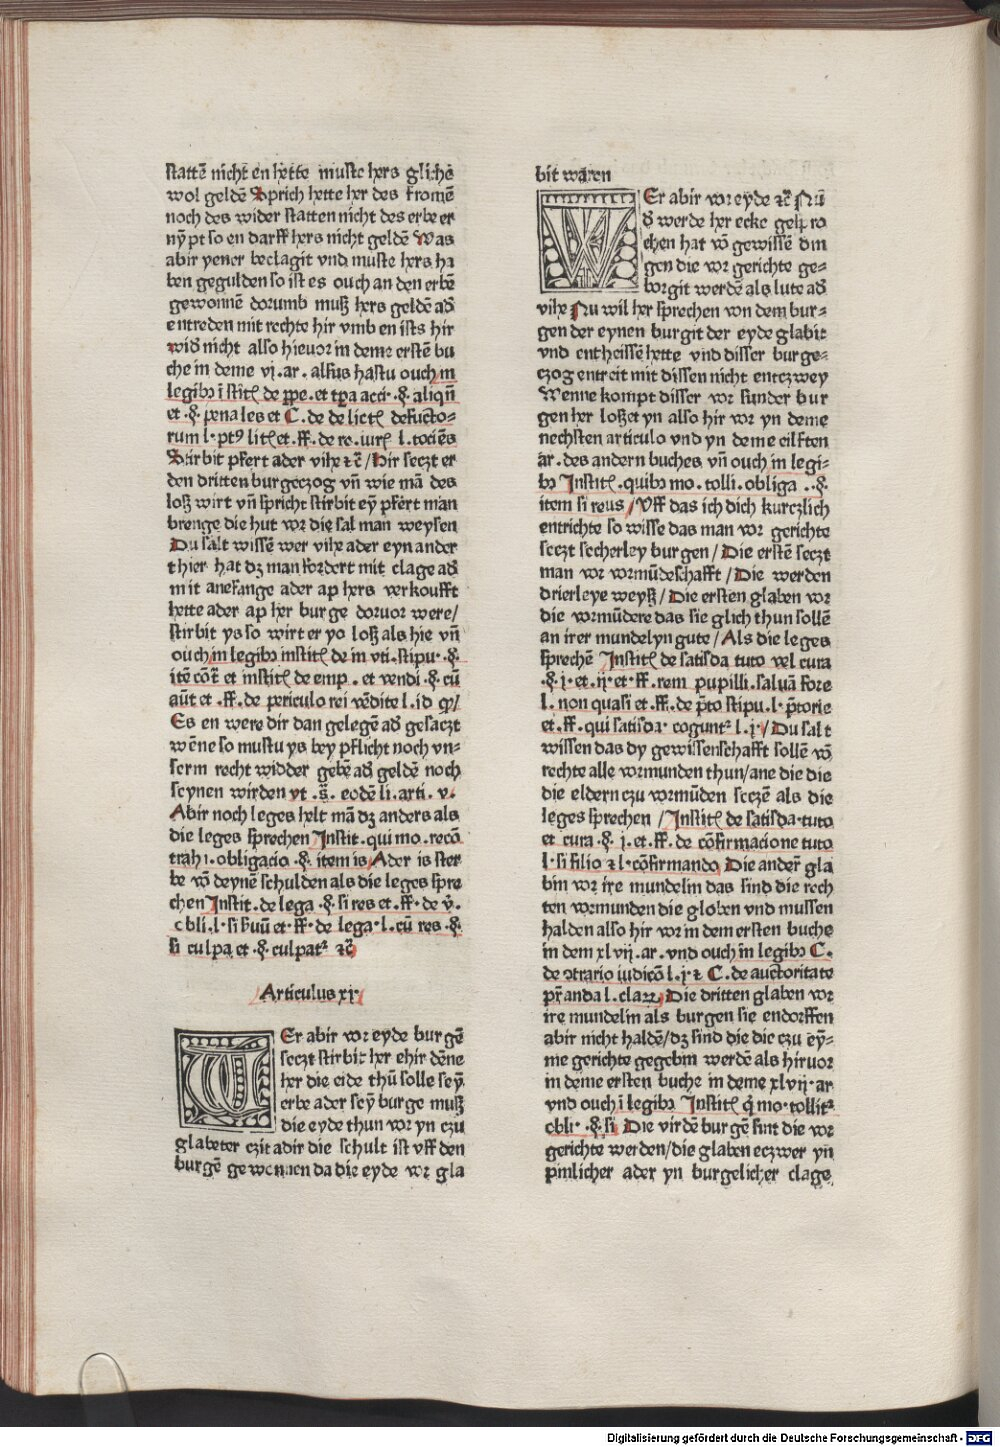 stattē nicht en hette muste hers glichē
wol geldē Sprich hette her des fromē
noch des wider statten nicht des erbe er
nÿpt so en darff hers nicht geldē Was
abir yener beclagit vnd muste hers ha
ben geguldenso ist es ouch an den erbē
gewonnē dorumb muß hers geldē ad
entreden mit rechte hir vmb en ists hir
wid nicht also hieuor in deme erstē bu
che in deme vj. ar. alsus hastu ouch in
legibꝫ
et .§. penales et C. de delictꝭ defuncto-
rum
Stirbit pfert ader vihe ⁊c̄ / Hir seczt er
den dritten burgeczog vn̄ wie mā des
loß wirt vn̄ spricht stirbit eȳ pfert man
brenge die hut vor die sal man weysen
Du salt wissē wer vihe ader eyn ander
thier hat dꝫ man fordert mit clage ad
mit anefange ader ap hers verkoufft
hette ader ap her burge doruor were /
stirbit ys so wirt er yo loß als hie vn̄
ouch in legibꝫ institꝭ de in vti. stipu. .§.
itē cōt̄ et institꝭ de emp. et vendi .§. cū
aūt et .ff. de periculo rei vēdite l. id qͥ /
Es en were dir dan gelegē ad gesaczt
wēne so mustu ys bey pflicht noch vn-
serm recht widder gebē ad geldē noch
seynen wirden vt .s̄. eodē li. arti. v.
Abir noch leges helt mā dꝫ anders als
die leges sprechen Instit. qui mo. recō
trah ı. obligacio .§. item is Ader is ster
be vō deynē schulden als die leges spre
chen Instit. de lega .§. si res et .ff. de v̄.
obli. l. si s̄uū et .ff. de lega. l. cū res .§.
si culpa et .§. culpatꝛ ⁊c̄
Articulus xj.
WEr abir vor eyde burgē
seczt stirbit her ehir dēne
her die eide thū solle seȳ
erbe ader seȳ burge muß
die eyde thun vor yn czu
glabeter czit adir die schult ist vff den
burgē gewonnen da die eyde vor gla
bit waren
WEr abir vor eyde ⁊c̄ Nū
d werde her ecke gesp ro
chen hat vō gewissē din
gen die vor gerichte ge-
borgit werdē als lute ad
vihe Nu wil her sprechen von dem bur-
gen der eynen burgit der eyde glabit
vnd entheissē hette vnd disser burge-
czog entreit mit dissen nicht entczwey
Wenne kompt disser vor sunder bur
gen her loßet yn also hir vor yn deme
nechsten articulo vnd yn deme eilften
ar. des andern buches vn̄ ouch in legi-
bꝫ Institꝭ. quibꝫ mo. tolli. obliga . .§.
item si reus / Vff das ich dich kurczlich
entrichte so wisse das man vor gerichte
seczt secherley burgen / Die erstē seczt
man vor vormūdeschafft / Die werden
drierleye weyß / Die ersten glaben vor
die vormūdere das sie glich thun sollē
an irer mundelyn gute / Als die leges
sprechē Institꝭ de satisda tuto vel cura
.§. j. et. ij. et .ff. rem pupilli. saluā fore
l. non quasi et .ff. de p̄to stipu. l. p̄torie
et .ff. qui satisda. cogunt ꝛ l. j. / Du salt
wissen das dy gewissenschafft sollē vō
rechte alle vormunden thun / ane die die
die eldern czu vormūden seczē als die
leges sprechen / Institꝭ de satisda. tuto
et cura .§. j. et .ff. de cōfirmacione tuto
l. si filio ⁊ l. cōfirmando Die anderꝛ gla
bin vor ire mundelin das sind die rech
ten vormunden die globen vnd mussen
halden also hir vor in dem ersten buche
in dem xlvij. ar. vnd ouch in legibꝫ C.
de ꝯtrario iudicō l. j. ⁊ C. de auctoritate
pr̄anda l. claꝝ Die dritten glaben vor
ire mundelin als burgen sie endorffen
abir nicht haldē / dꝫ sind die die czu eȳ-
me gerichte gegebin werdē als hiruor
in deme ersten buche in deme xlvij. ar
vnd ouch ī legibꝫ Institꝭ q̄ mo. tollitꝛ
obli. .§. si Die virdē burgē sint die vor
gerichte werden / die glaben eczwer yn
pinlicher ader yn burgelicher clage
Digitalisierung gefördert durch die Deutsche Forschungsgemeinschaft - DFG